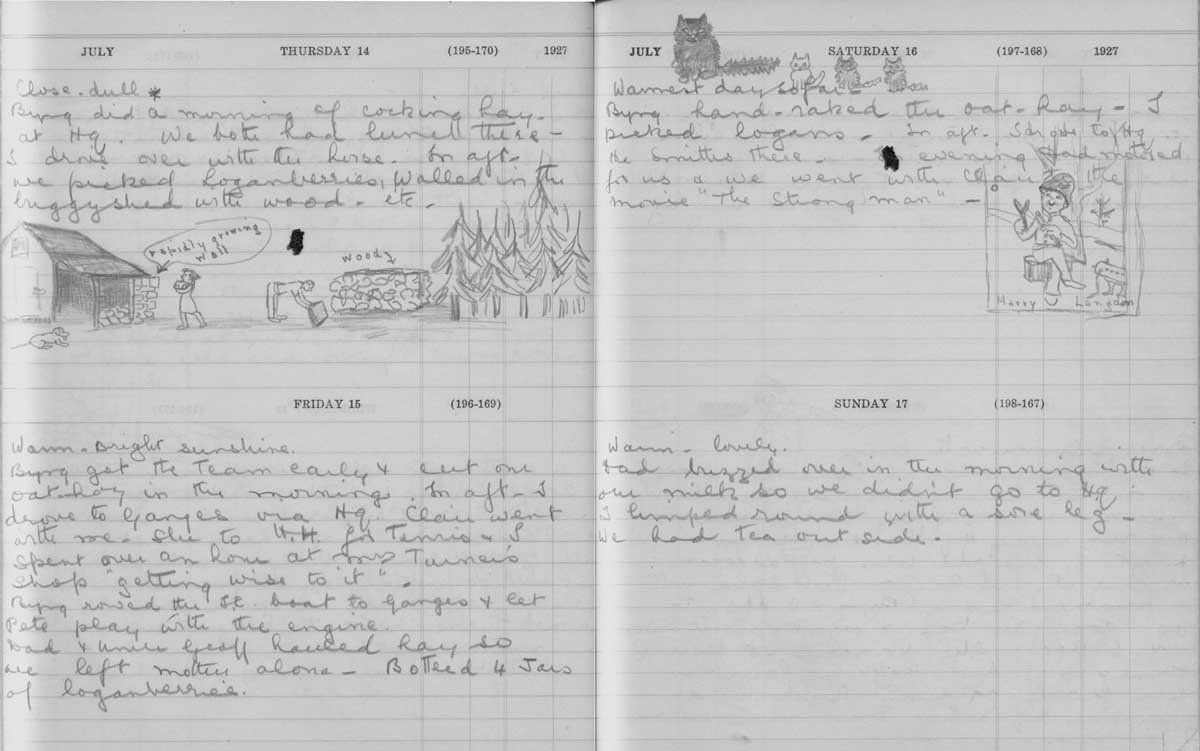 JULY THURSDAY 14 (195-170) 1927
Close. dull *
Byng did a morning of cocking hay.
at Hq. We both had lunch there -
I drove over with the horse. In aft.
we picked Loganberries, Walled in the
buggyshed with wood. etc.
rapidly growing
wall
wood
FRIDAY 15 (196-169)
Warm. Bright sunshine.
Byng got the Team early & cut our
oat-hay in the morning. In aft. I
drove to Ganges via Hq. Clair went
with me. She to H.H. for Tennis & I
spent over an hour at Mrs Turner's
shop "getting wise to it".
Byng rowed the boat to Ganges & let
Pete play with the engine.
Dad & Uncle Geoff hauled hay so
we left mother alone - Bottled 4 Jars
of loganberries.
JULY SATURDAY 16 (197-168) 1927
Warmest day so far -
Byng hand-raked the oat-hay - I
picked logans - In aft. to Hq
the Smittes there. evening Dad motored
for us & we went with Clair the
movie "The Strong man" -
Harry Langdon
SUNDAY 17 (198-167)
Warm - lovely.
Dad buzzed over in the morning with
our milk so we didn't go to Hq
I limped round with a sore leg -
We had Tea out side.